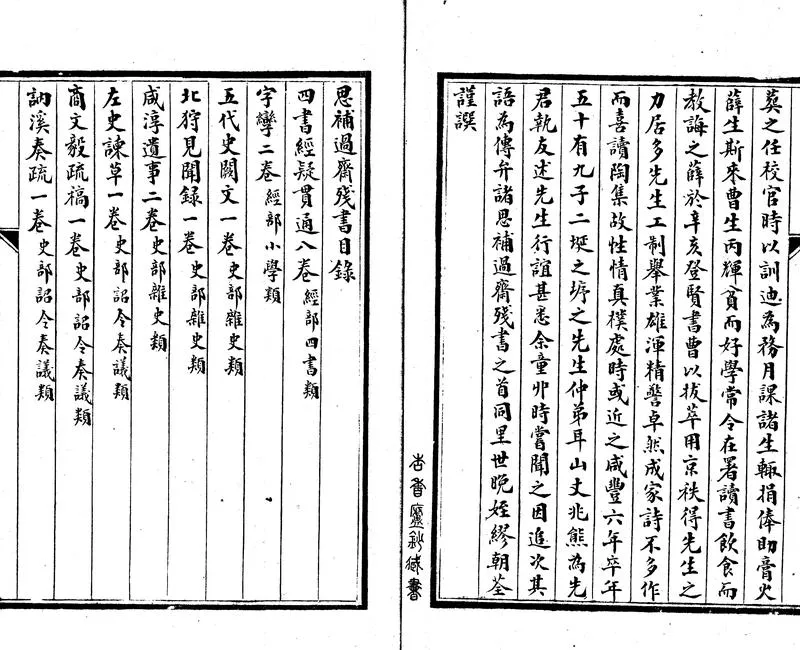 葬之任校官時以訓迪為務月課諸生輒捐俸助膏火
薛生斯來曹生丙輝貧而好學常令在署讀書飲食而
教誨之薛於辛亥登賢書曹以拔萃用京秩得先生之
力居多先生工制舉業雄渾精警卓然成家詩不多作
而喜讀陶集故性情真樸處時或近之咸豐六年卒年
五十有九子二埏之墀之先生仲弟耳山丈兆熊為先
君執友述先生行誼甚悉余童丱時嘗聞之因追次其
語為傳弁諸思補過齋殘書之首同里世晚姪繆朝荃
謹譔
杏香廬鈔臧書
思補過齋殘書目錄
四書經疑貫通八卷經部四書類
字孿二卷經部小學類
五代史闕文一卷史部雜史類
北狩見聞錄一卷史部雜史類
咸淳遺事二卷史部雜史類
左史諫草一卷史部詔令奏議類
商文毅疏稿一卷史部詔令奏議類
訥溪奏疏一卷史部詔令奏議類